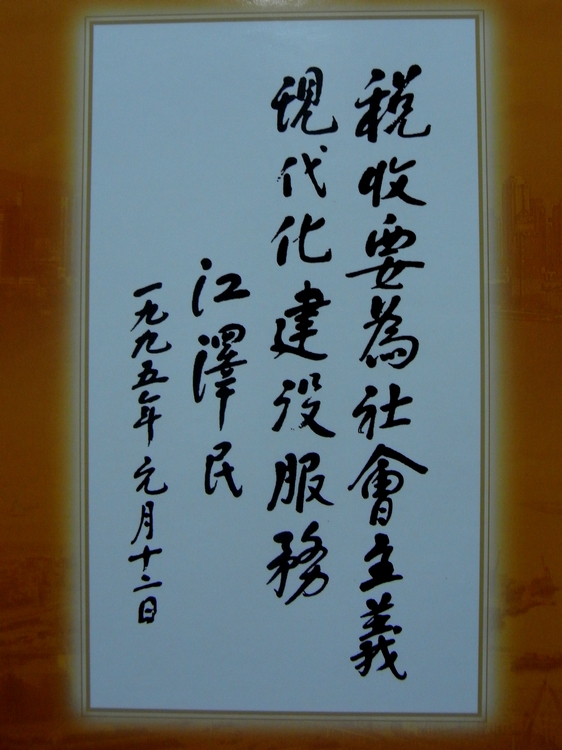 税收要為社會主義
現代化建设服務
江澤民
一九九五年元月十二日